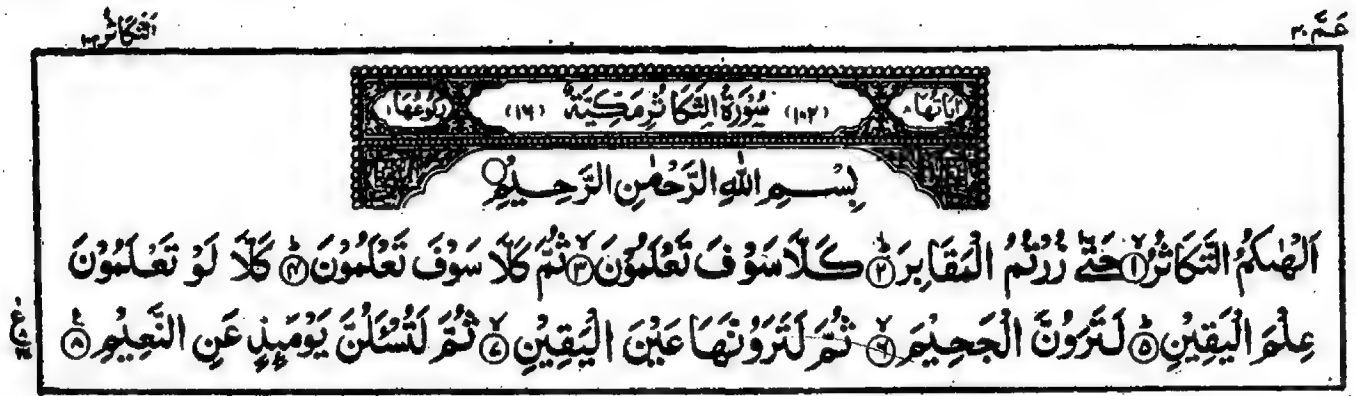 عَمَّ ٣٠
التَّكَاثُر ١٠٢
اٰيَاتُهَا ٨ (١٠٢) سُوْرَةُ التَّكَاثُرِ مَكِّيَّةٌ (١٦) رُكُوْعُهَا ١
بِسْمِ اللّٰهِ الرَّحْمٰنِ الرَّحِيْمِ
اَلْهٰىكُمُ التَّكَاثُرُ ۙ﴿١﴾ حَتّٰى زُرْتُمُ الْمَقَابِرَ ؕ﴿٢﴾ كَلَّا سَوْفَ تَعْلَمُوْنَ ۙ﴿٣﴾ ثُمَّ كَلَّا سَوْفَ تَعْلَمُوْنَ ؕ﴿٤﴾ كَلَّا لَوْ تَعْلَمُوْنَ
عِلْمَ الْيَقِيْنِ ؕ﴿٥﴾ لَتَرَوُنَّ الْجَحِيْمَ ۙ﴿٦﴾ ثُمَّ لَتَرَوُنَّهَا عَيْنَ الْيَقِيْنِ ۙ﴿٧﴾ ثُمَّ لَتُسْـَٔلُنَّ يَوْمَىِٕذٍ عَنِ النَّعِيْمِ ؕ﴿٨﴾